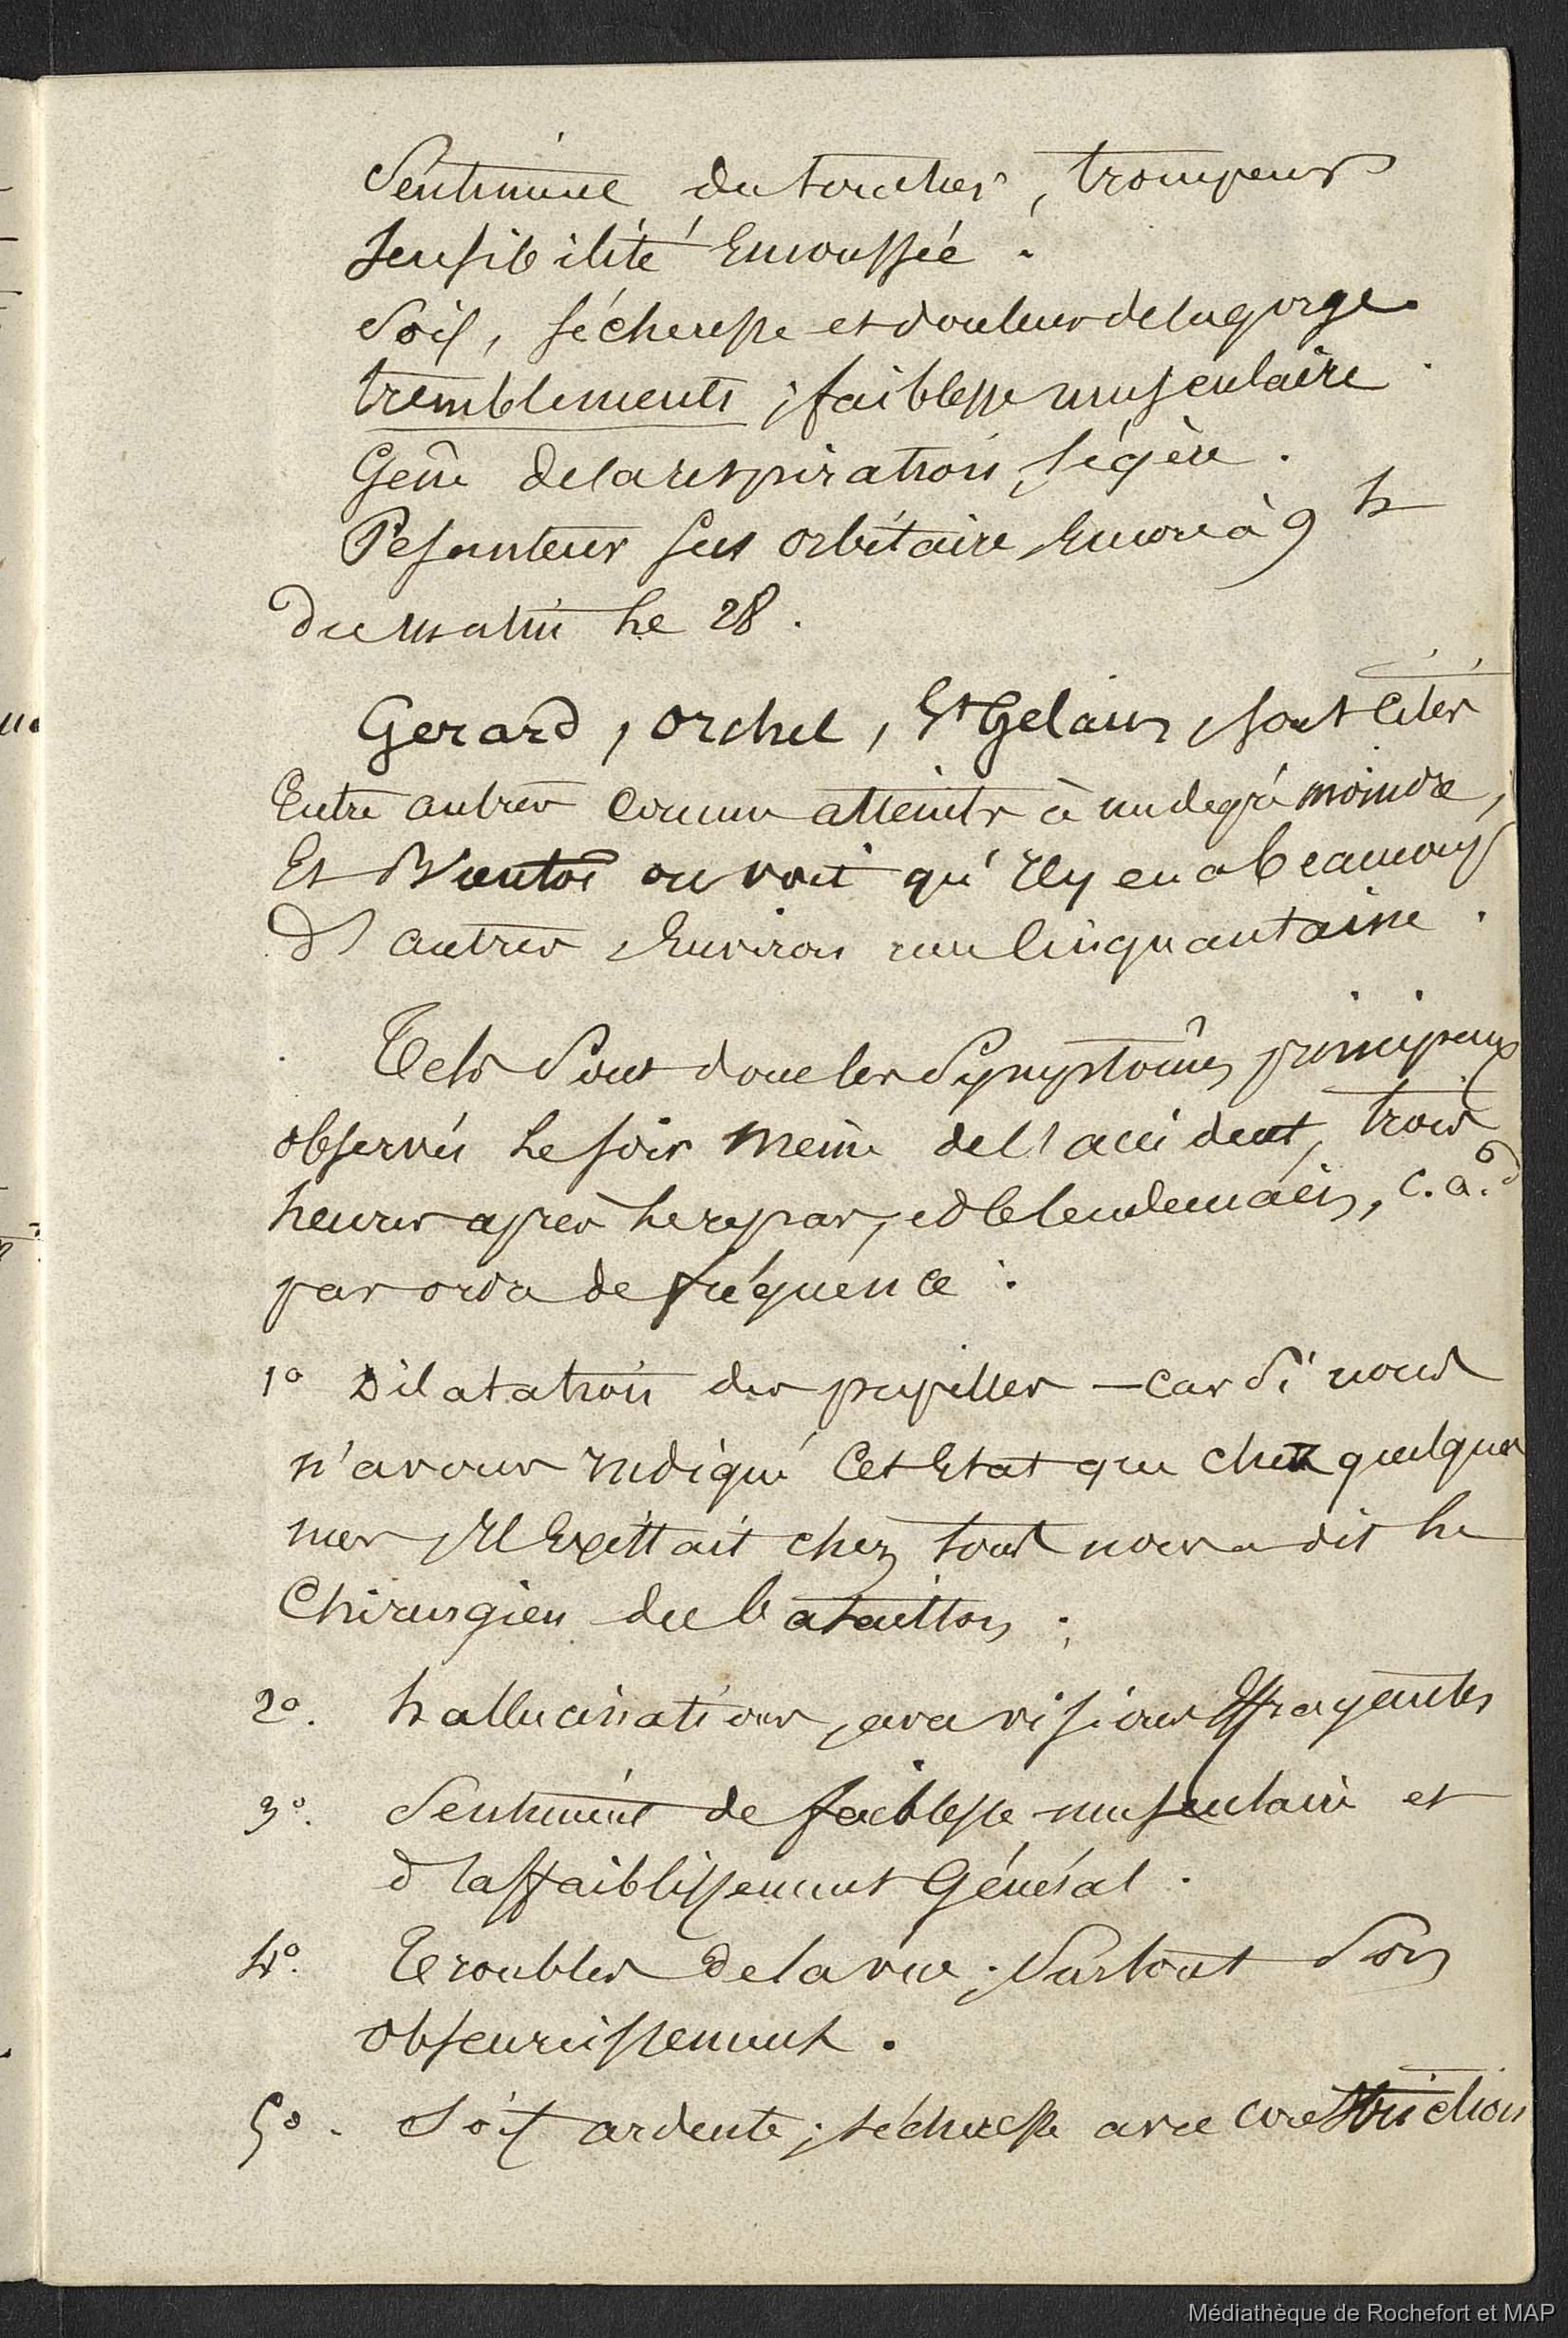 Sentiment du toucher, trompeur
sensibilité Emoussée.
Soif, sécheresse et douleur de la gorge.
tremblements ; faiblesse musculaire
Gêne de la respiration, légère.
Pesanteur sus orbitaire encore à 9 h
du matin le 28.
Gerard, Orchel, St Gelais, sont cités
Entre autres comme atteints à un degré moindre,
Et Bientot on voit qu'Il y en a beaucoup
d'autres Environ une Cinquantaine.
Tels Sont donc les Symptômes principaux
observés le soir même de l'accident, trois
heures après le repas, et le lendemain, c. a. d
par ordre de fréquence :
1° Dilatation des pupilles — car Si nous
n'avons Indiqué Cet Etat que chez quelques
uns, Il Existait chez tous nous a dit le
Chirurgien du bataillon ;
2°. hallucinations, avec visions Effrayantes
3°. Sentiment de faiblesse musculaire et
d'affaiblissement Général.
4°. Troubles de la vue ; Surtout Son
obscurcissement.
5°. Soif ardente ; sécheresse avec constriction
Médiathèque de Rochefort et MAP